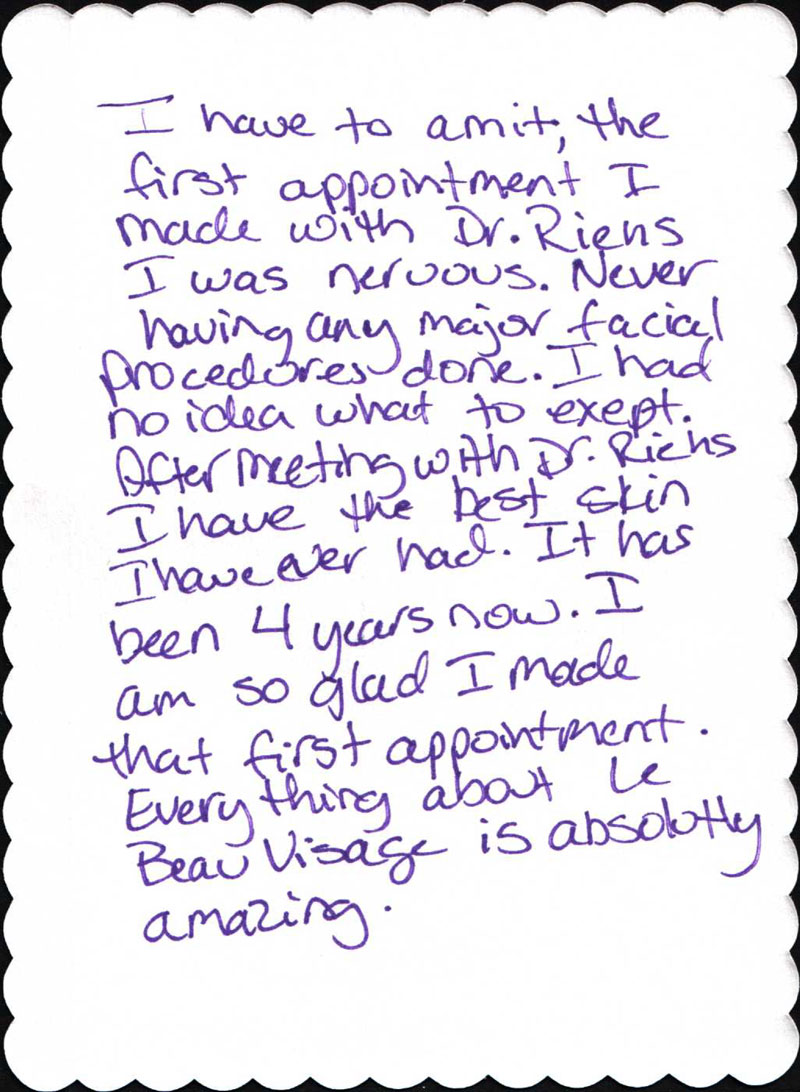 I have to amit, the
first appointment I
made with Dr. Riens
I was nervous. Never
having any major facial
procedures done. I had
no idea what to exept.
After meeting with Dr. Riens
I have the best skin
I have ever had. It has
been 4 years now. I
am so glad I made
that first appointment.
Everything about Le
Beau Visage is absolutly
amazing.